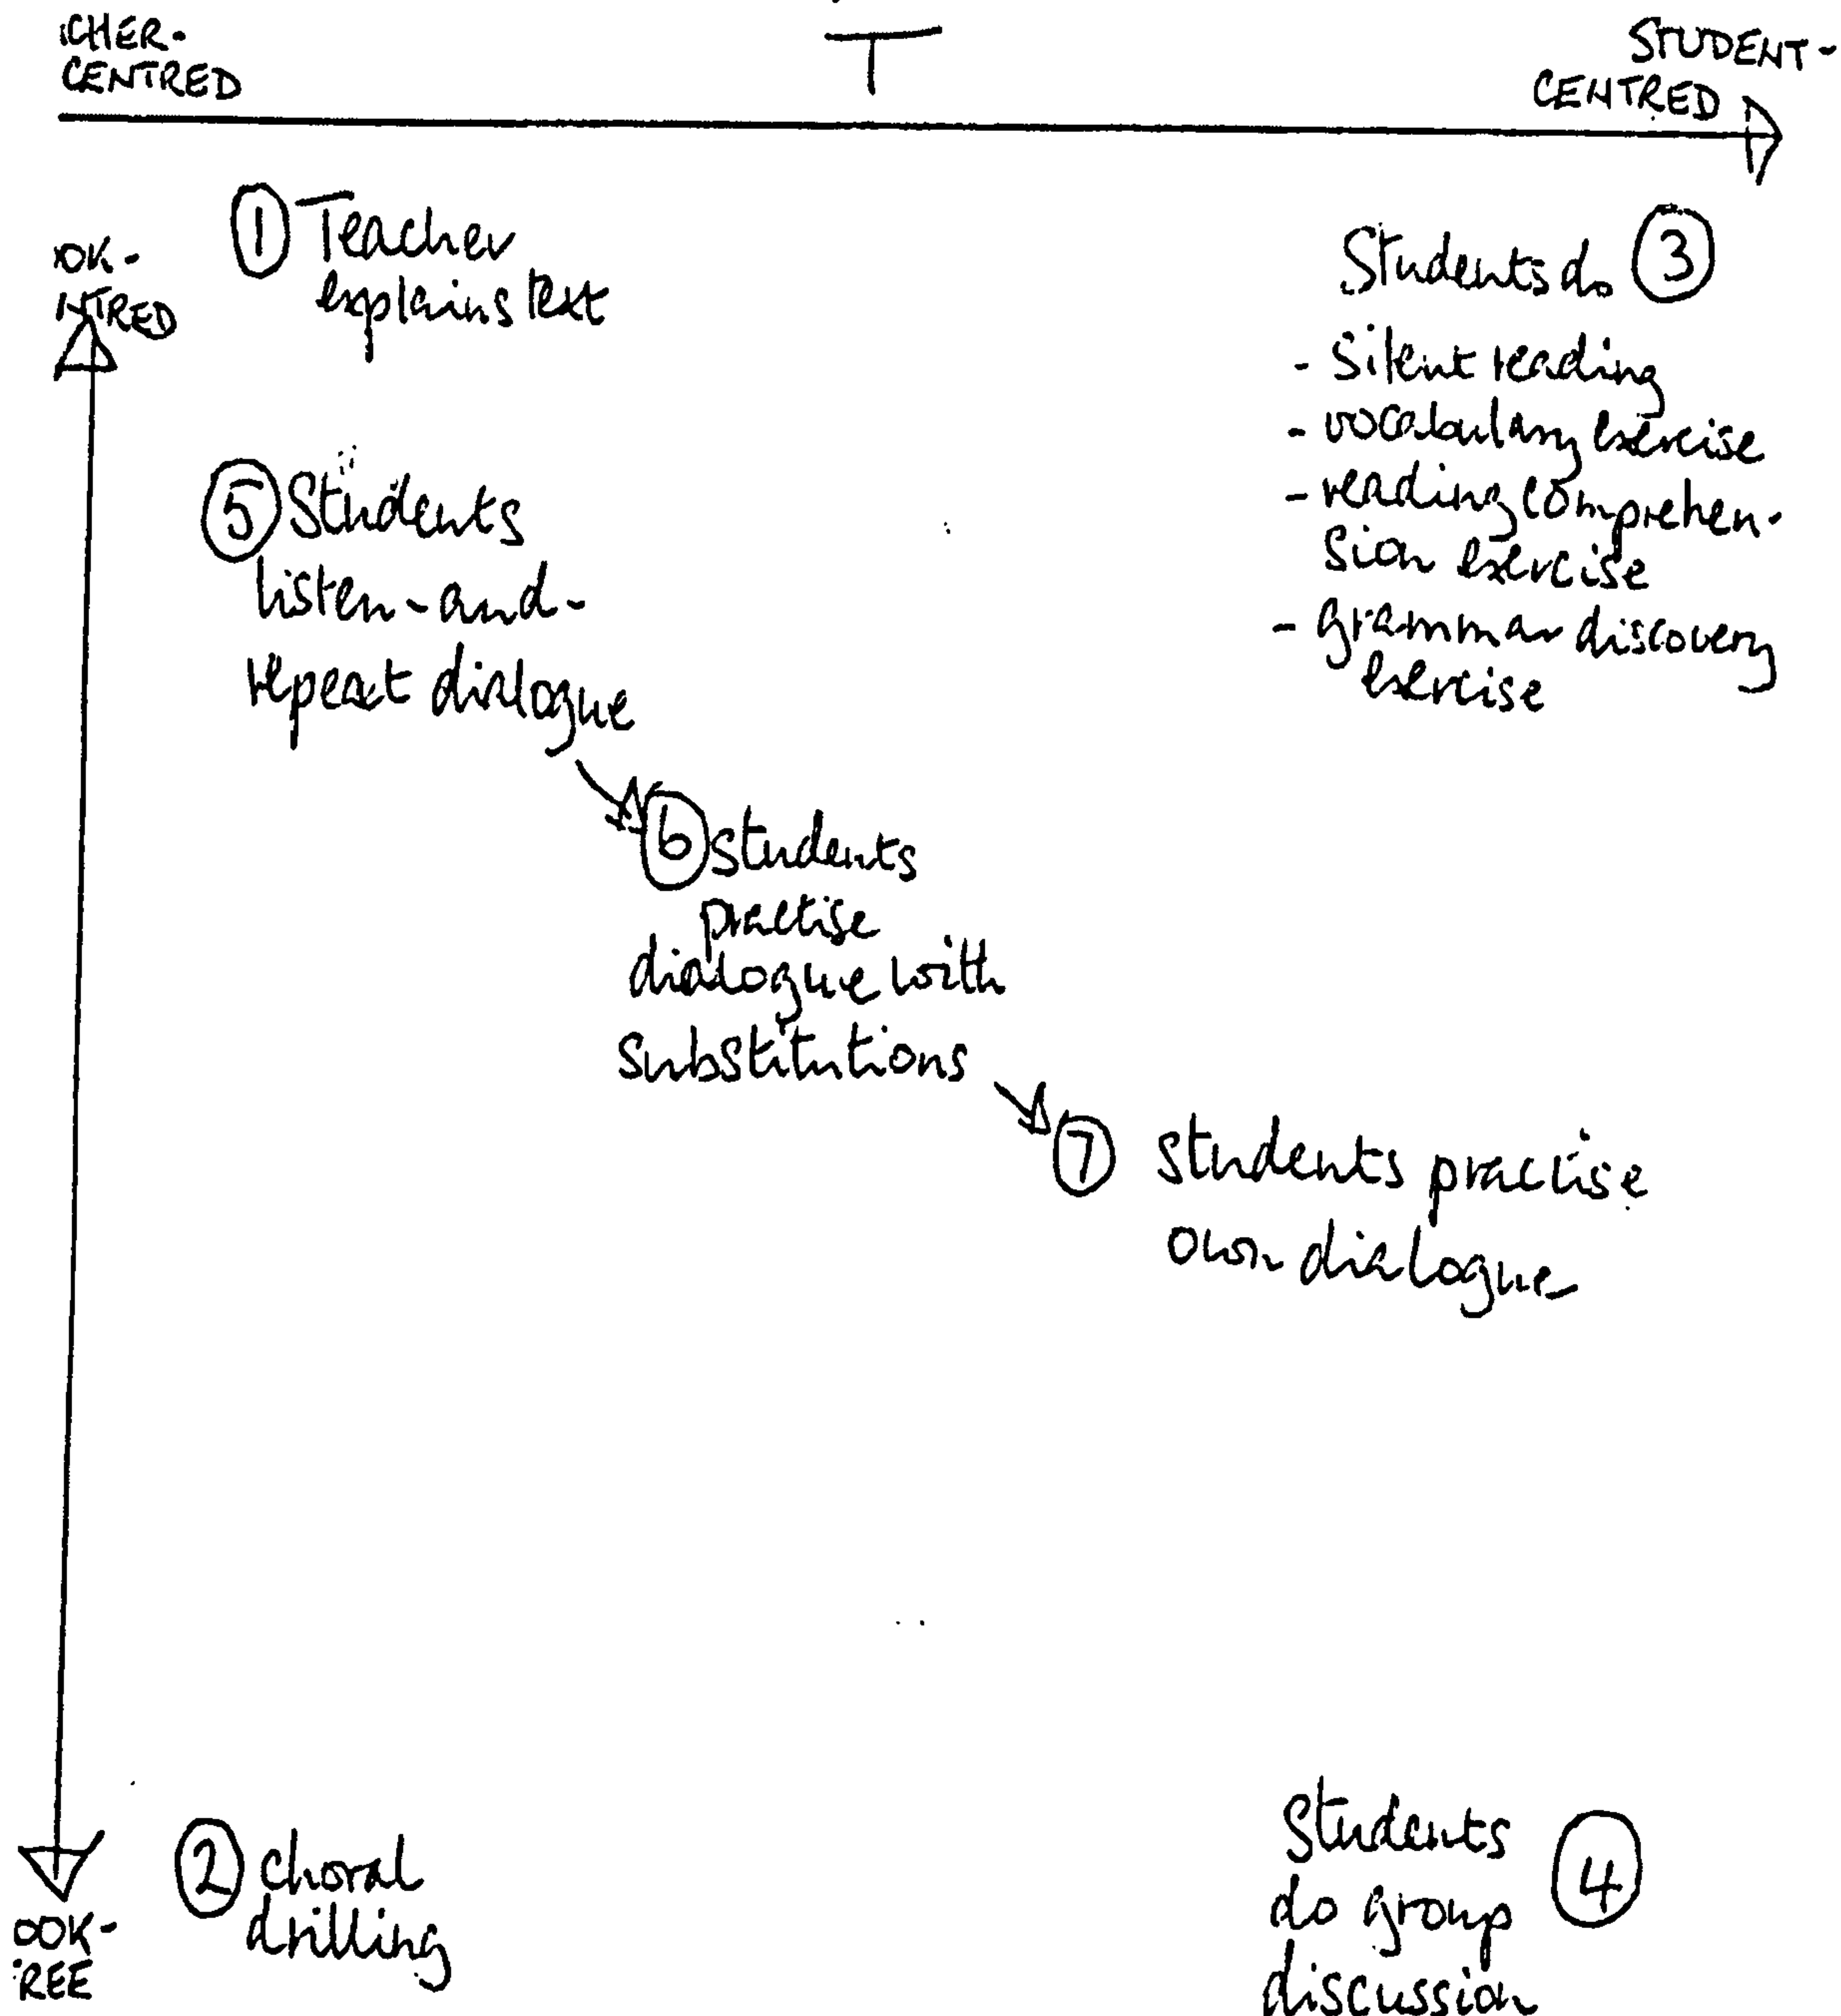 ICHER-
CENTRED
T
STUDENT-
CENTRED
OK-
NTRED
1 Teacher
explains text
Students do 3
- silent reading
- vocabulary exercise
- reading comprehen-
sion exercise
- grammar discovery
exercise
5 Students
listen-and-
repeat dialogue
6 students
practise
dialogue with
substitutions
7 students practise
own dialogue
2 choral
drilling
Students
do group 4
discussion
OOK-
REE